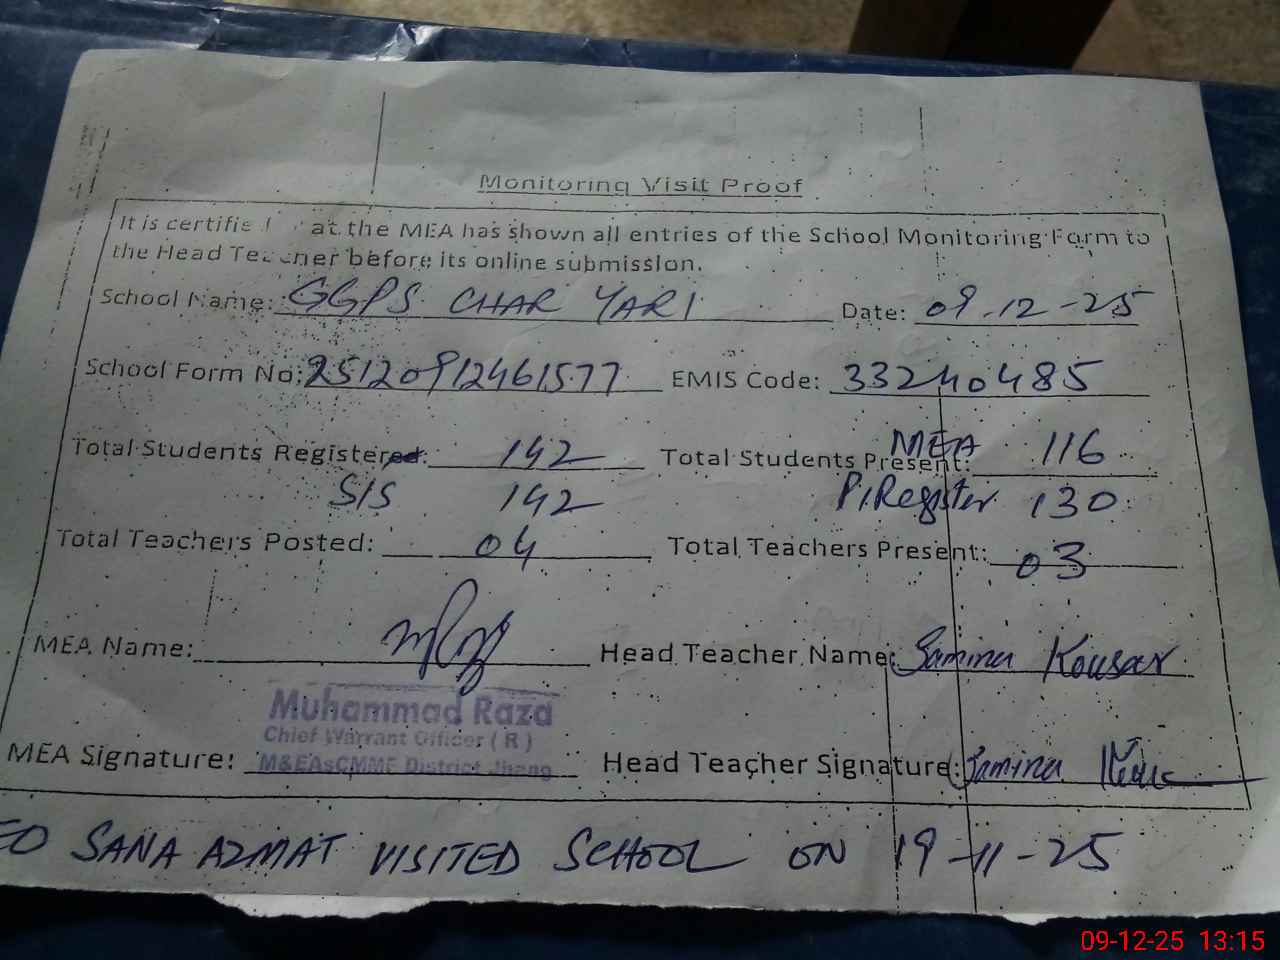 Monitoring Visit Proof
It is certified that the MEA has shown all entries of the School Monitoring Form to
the Head Teacher before its online submission.
School Name: GGPS CHAR YARI Date: 09-12-25
School Form No: 25120912461577 EMIS Code: 33240485
Total Students Registered: 142 Total Students Present: MEA 116
SIS 142 P/Register 130
Total Teachers Posted: 04 Total Teachers Present: 03
MEA Name: Head Teacher Name: Samina Kousar
Muhammad Raza
Chief Warrant Officer ( R )
MEA Signature: M&EAsCMMF District Jhang Head Teacher Signature: Samina
EO SANA AZMAT VISITED SCHOOL ON 19-11-25
09-12-25 13:15